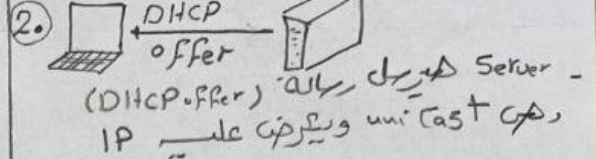 2.
DHCP
offer
- Server هيرسل رسالة (DHCP offer)
وهى unicast ويعرض عليه IP